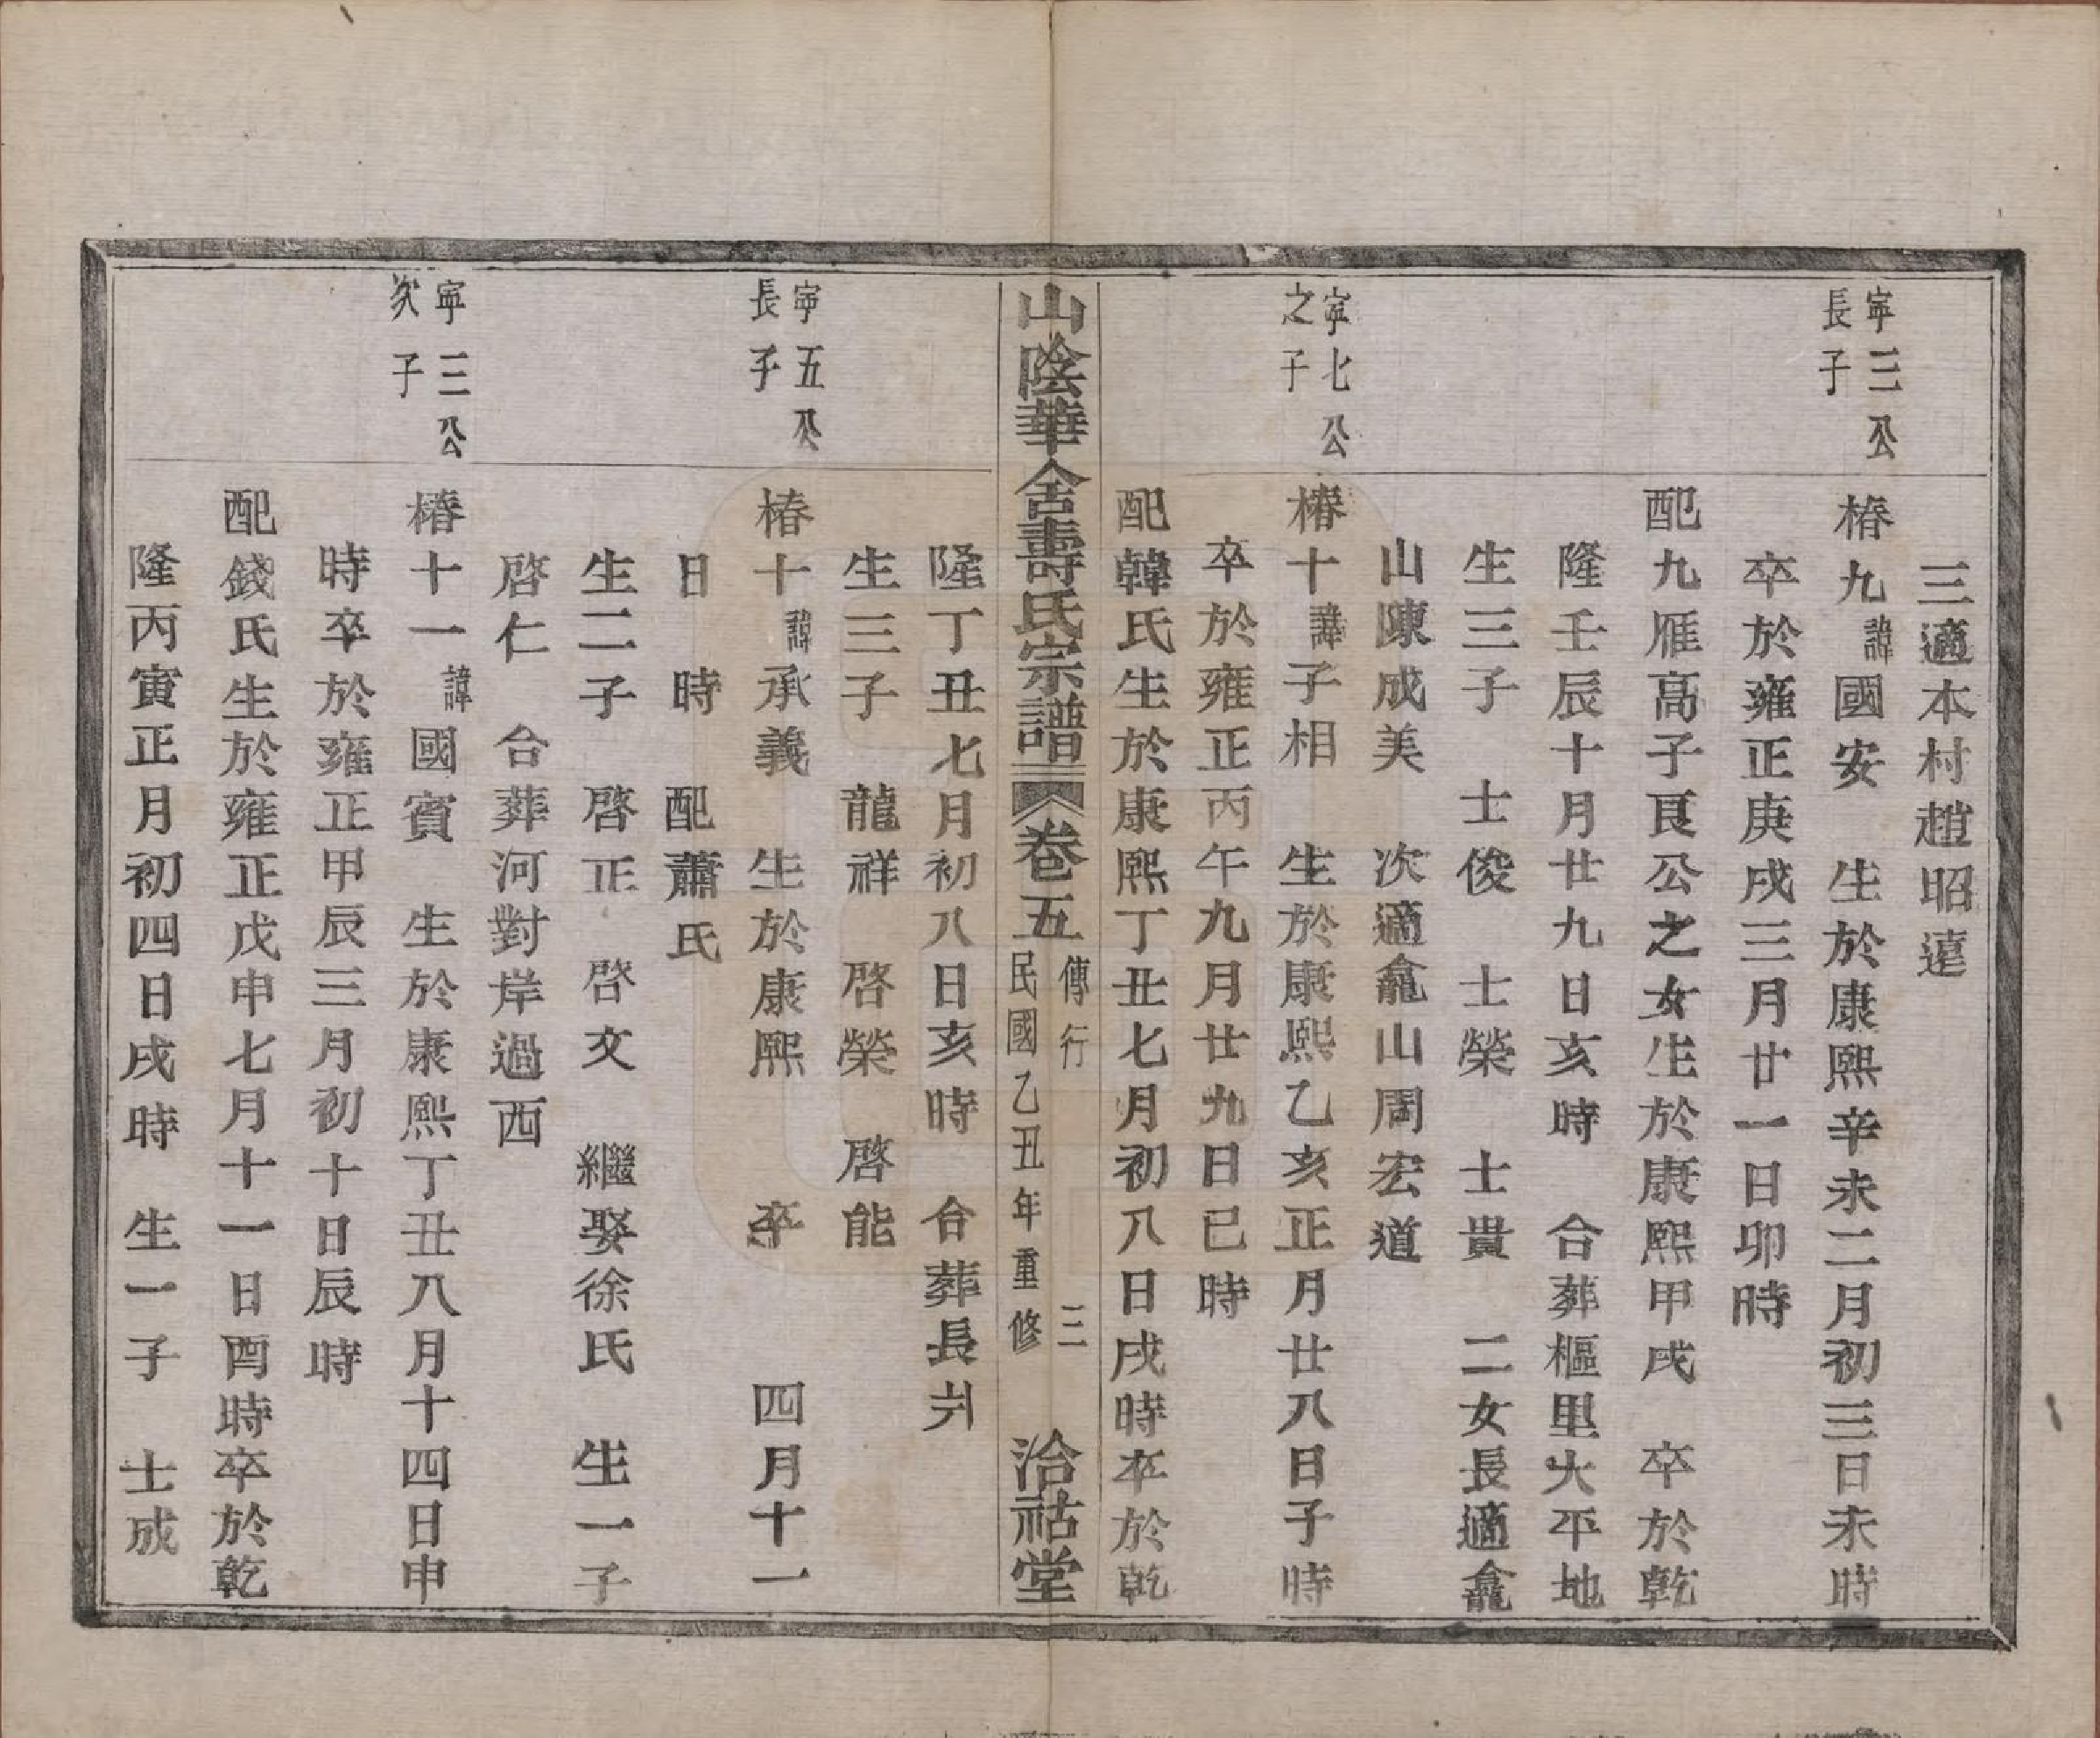 三適本村趙昭遠
寧三公
長子
椿九諱國安　生於康熙辛未二月初三日未時
卒於雍正庚戌三月廿一日卯時
配九雁高子良公之女生於康熙甲戌　卒於乾
隆壬辰十月廿九日亥時　合葬樞里大平地
生三子　士俊　士榮　士貴　二女長適龕
山陳成美　次適龕山周宏道
寧七公
之子
椿十諱子相　生於康熙乙亥正月廿八日子時
卒於雍正丙午九月廿九日巳時
配韓氏生於康熙丁丑七月初八日戌時卒於乾
山陰華舍壽氏宗譜　卷五
傳行　三
民國乙丑年重修
洽祜堂
隆丁丑七月初八日亥時　合葬長爿
生三子　龍祥　啓榮　啓能
寧五公
長子
椿十諱承義　生於康熙　卒　四月十一
日　時　配蕭氏
生二子　啓正　啓文　繼娶徐氏　生一子
啓仁　合葬河對岸過西
寧三公
次子
椿十一諱國賓　生於康熙丁丑八月十四日申
時卒於雍正甲辰三月初十日辰時
配錢氏生於雍正戊申七月十一日酉時卒於乾
隆丙寅正月初四日戌時　生一子　士成